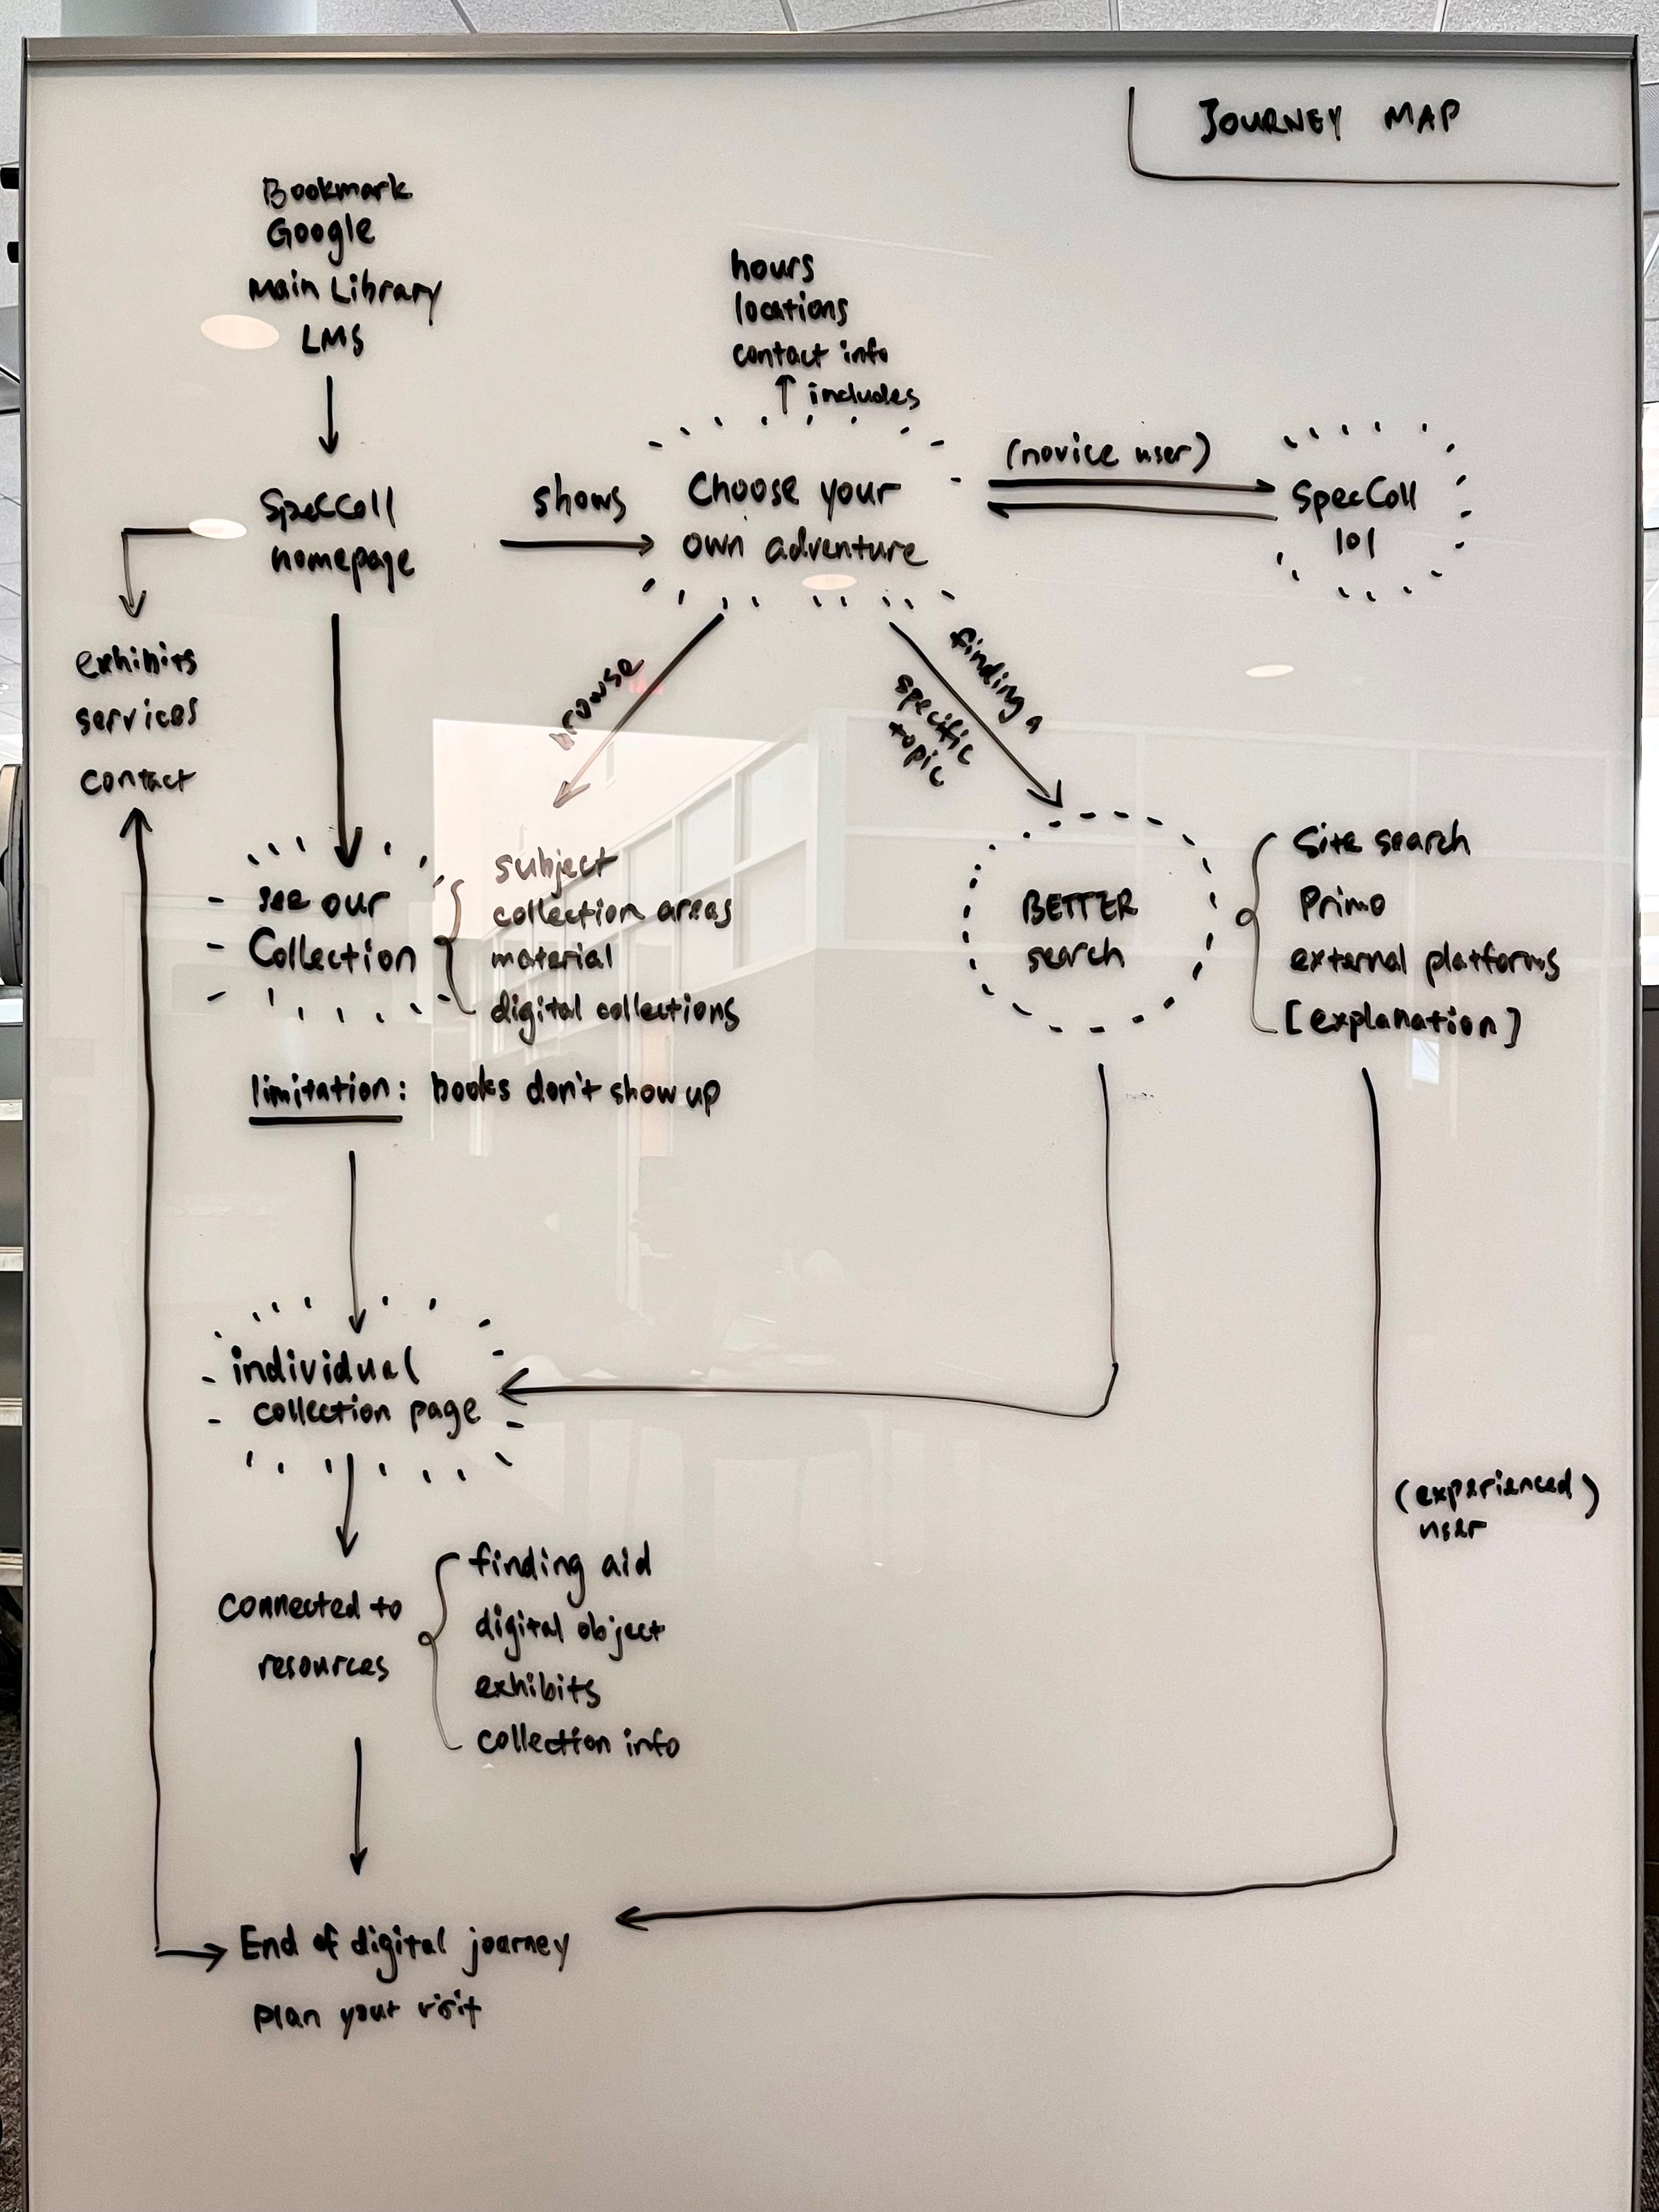 JOURNEY MAP
Bookmark
Google
Main Library
LMS
hours
locations
contact info
includes
SpecColl
homepage
shows
Choose your
own adventure
(novice user)
SpecColl
101
exhibits
services
contact
browse
finding a
specific
topic
see our
Collection
subject
collection areas
material
digital collections
BETTER
search
Site search
Primo
external platforms
[explanation]
limitation: books don't show up
individual
collection page
(experienced)
user
connected to
resources
finding aid
digital object
exhibits
collection info
End of digital journey
plan your visit